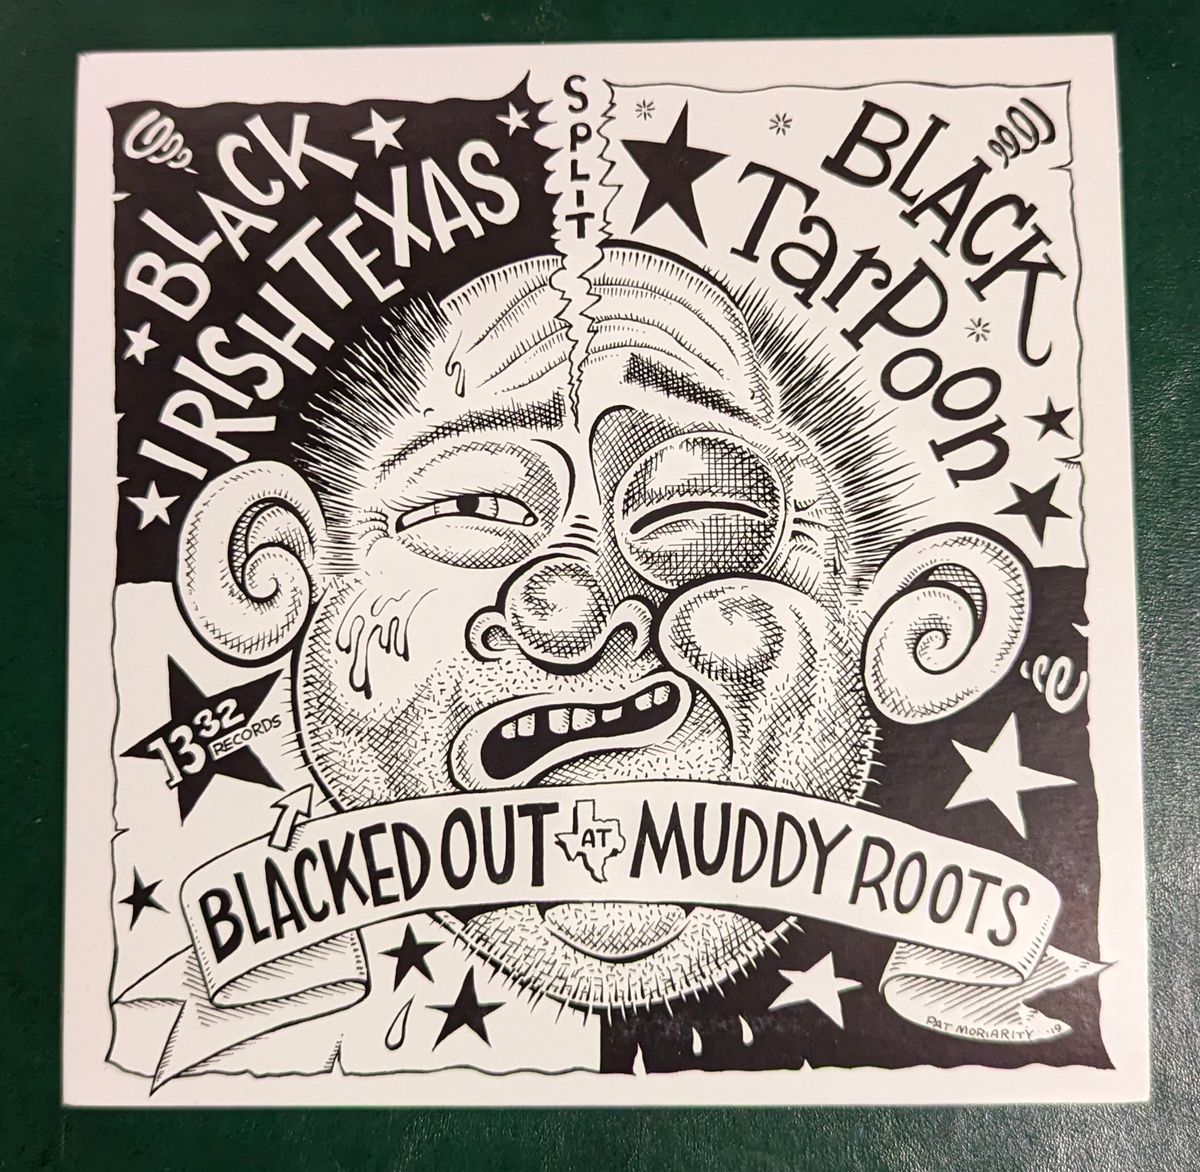 SPLIT
BLACK
IRISH TEXAS
BLACK
TarPoon
1332
RECORDS
BLACKED OUT AT MUDDY ROOTS
PAT MORIARITY .19